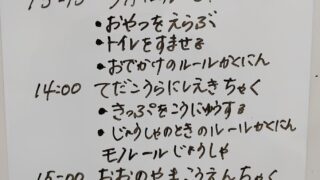 ・おやつをえらぶ
・トイレをすませる
・おでかけのルールかくにん
14:00 てだこうらにしえきちゃく
・きっぷをこうにゅうする
・じょうしゃのときのルールかくにん
モノレールじょうしゃ
15:00 おおのやまこうえんちゃく